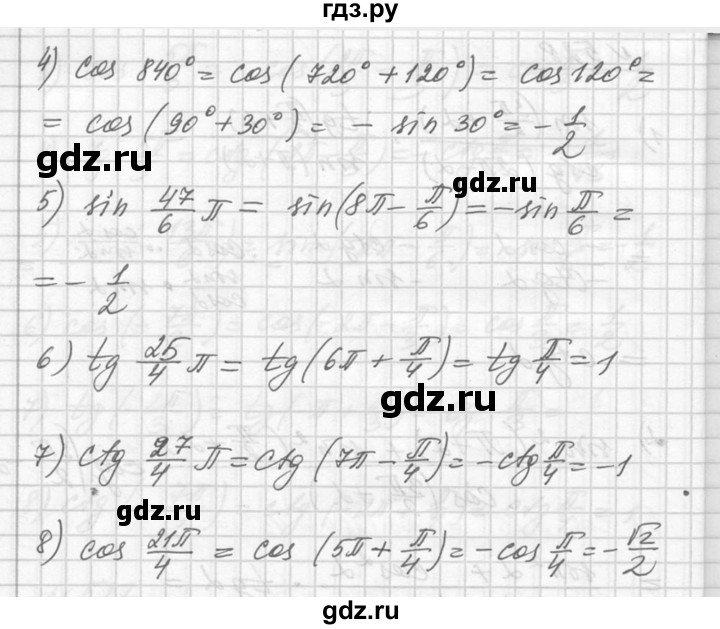 гдз.ру
4) cos 840° = cos(720° + 120°) = cos 120° =
= cos(90° + 30°) = - sin 30° = - 1/2
gdz.ru
gdz.ru
5) sin 47/6 π = sin(8π - π/6) = - sin π/6 =
= - 1/2
6) tg 25/4 π = tg(6π + π/4) = tg π/4 = 1
gdz.ru
7) ctg 27/4 π = ctg(7π - π/4) = - ctg π/4 = - 1
gdz.ru
8) cos 21π/4 = cos (5π + π/4) = - cos π/4 = - √2/2
gdz.ru